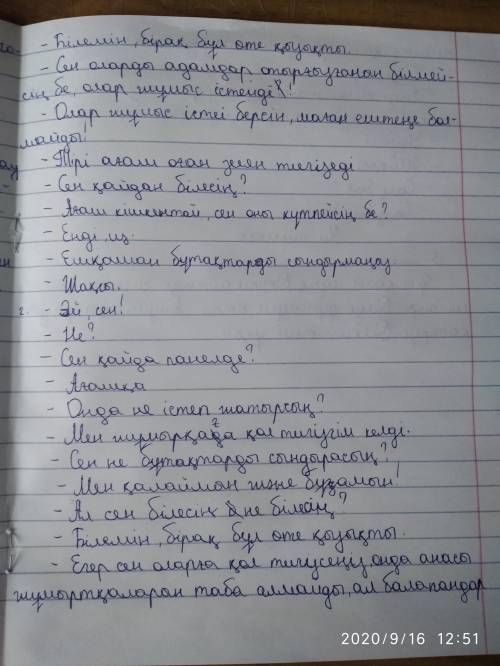 - Білемін, бірақ бұл өте қызықты.
- Сен оларды адамдар отырғызғанын білмей-
сің бе, олар жұмыс істенді!
- Олар жұмыс істеі берсін, маған ештеңе бол-
майды!
- Тірі ағаш оған зиен тигізеді
- Сен қайдан білесің?
- Ағаш кішкентай, сен оны күтпейсің бе?
- Енді,
- Ешқашан бұтақтарды сындырмаңаз.
- Жақсы.
2. - Эй, сен!
- Не?
- Сен қайда панелде?
- Ағашқа
- Онда не істеп жатырсың?
- Мен жұмырқаға қол тигізгім келді.
- Сен не бұтақтарды сындырасың?
- Мен қалаймын және бұзамын!
- Ал сен білесің не білесің?
- Білемін, бірақ бұл өте қызықты.
- Егер сен оларға қол тигусеңіз, онда анасы
жұмыртқаларан таба алмайды, ал балапандар
2020/9/16 12:51